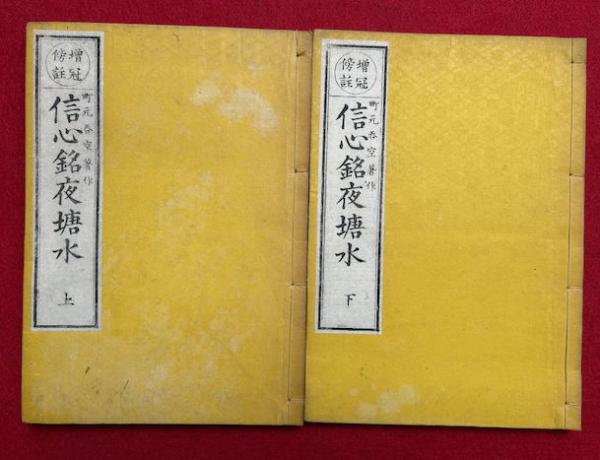 增冠
傍註
町元吞空著作
信心銘夜塘水
上
增冠
傍註
町元吞空著作
信心銘夜塘水
下